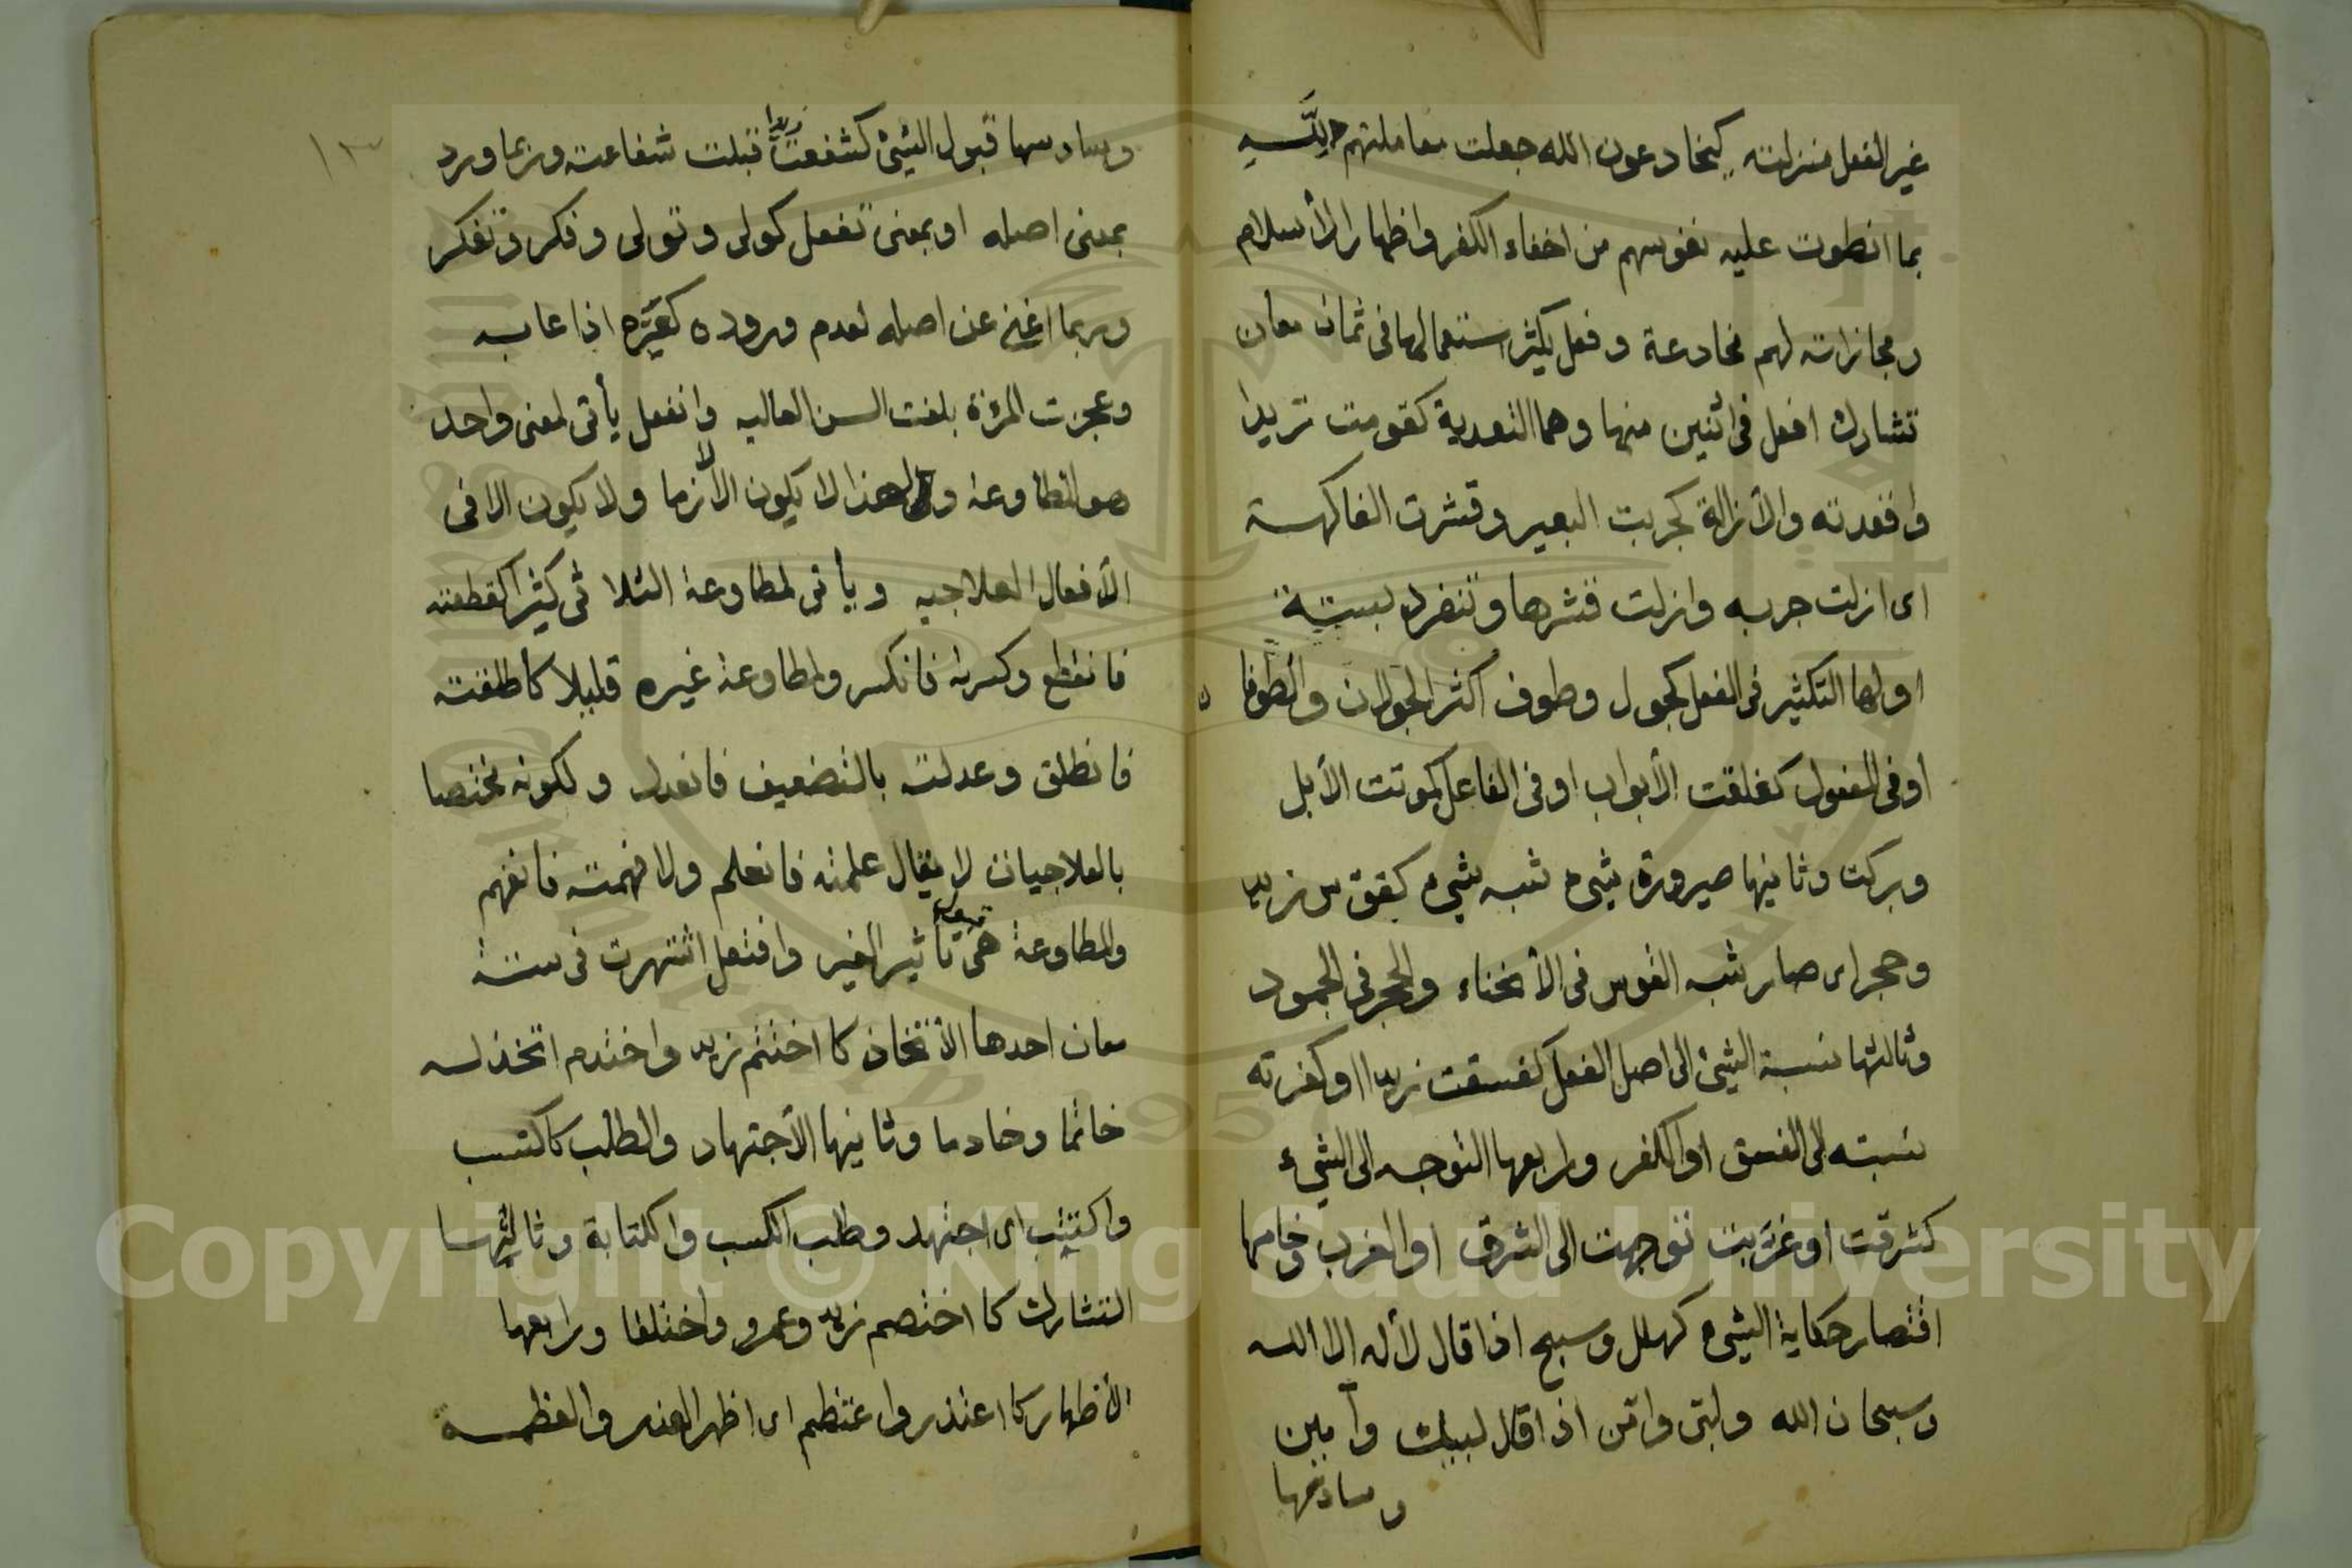 غير الفعل منزلته كيخادعون الله جعلت معاملتهم لله
بما انطوت عليه نفوسهم من اخفاء الكفر واظهار الأسلام
ومجازاته لهم مخادعة وفعل يكثر استعمالها فى ثمان معان
تشارك افعل فى اثنين منها وهما التعدية كقومت زيدا
واقعدته والأزالة كجربت البعير وقشرت الفاكهة
اى ازلت جربه وازلت قشرها وتنفرد بستة
اولها التكثير فى الفعل كجول وطوف اكثر الجولان والطوفان
اوفى المفعول كغلقت الأبواب اوفى الفاعل كموتت الأبل
وبركت وثانيها صيرورة شىء شبه شىء كقوس زيد
وحجر اى صار شبه القوس فى الأنحناء والحجر فى الجمود
وثالثها نسبة الشئ الى اصل الفعل كفسقت زيدا اوكفرته
نسبته الى الفسق اوالكفر ورابعها التوجه الى الشىء
كشرقت اوغربت توجهت الى الشرق اوالغرب وخامسها
اقتصار حكاية الشىء كهلل وسبح اذا قال لا اله الا الله
وسبحان الله ولبى وامن اذا قال لبيك وآمين
وسادسها
١٣
وسادسها قبول الشئ كشفعت زيدا قبلت شفاعته وربما ورد
بمعنى اصله اوبمعنى تفعل كولى وتولى وفكر وتفكر
وربما اغنى عن اصله لعدم وروده كعيّره اذا عابه
وعجزت المرأة بلغت السن العاليه وانفعل يأتى لمعنى واحد
هو المطاوعة ولهذا لا يكون الا لازما ولا يكون الا فى
الأفعال العلاجيه ويأتى لمطاوعة الثلاثى كثيرا كقطعته
فانقطع وكسرته فانكسر ولمطاوعة غيره قليلا كاطلقته
فانطلق وعدلته بالتضعيف فانعدل ولكونه مختصا
بالعلاجيات لا يقال علمته فانعلم ولا فهمته فانفهم
والمطاوعة هى قبول تأثير الغير وافتعل اشتهرت فى ستة
معان احدها الأتخاذ كاختتم زيد واختدم اتخذ له
خاتما وخادما وثانيها الأجتهاد والطلب كاكتسب
واكتتب اى اجتهد وطلب الكسب والكتابة وثالثها
التشارك كاختصم زيد وعمرو واختلفا ورابعها
الأظهار كاعتذر واعتظم اى اظهر العذر والعظمة
Copyright © King Saud University